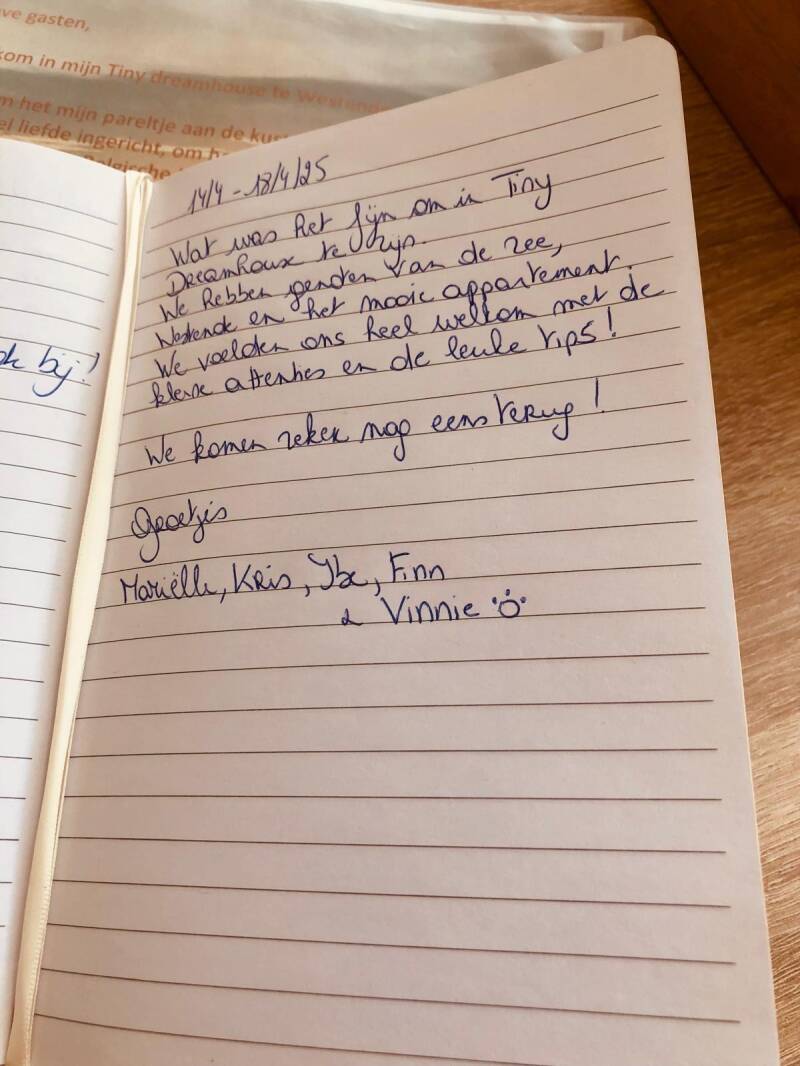 ve gasten,
kom in mijn Tiny dreamhouse te Westende
m het mijn pareltje aan de kust
el liefde ingericht, om h
Belgische
ok bij!
14/4 - 18/4/25
Wat was het fijn om in Tiny
Dreamhouse te zijn.
We hebben genoten van de zee,
Westende en het mooie appartement.
We voelden ons heel welkom met de
kleine attenties en de leuke tips!
We komen zeker nog eens terug!
Groetjes
Mariëlle, Kris, Ybe, Finn
& Vinnie